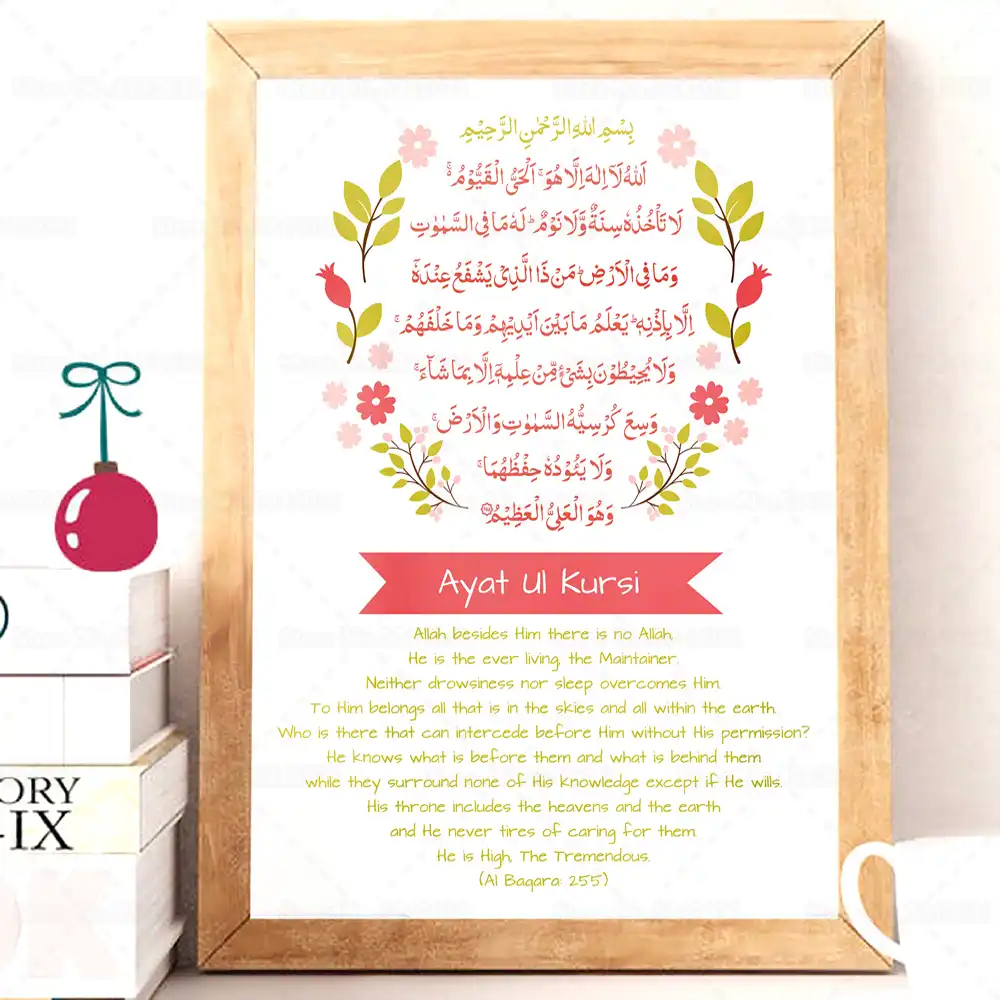 بِسْمِ اللهِ الرَّحْمٰنِ الرَّحِيْمِ
اَللهُ لَاۤ اِلٰهَ اِلَّا هُوَ ۚ اَلْحَىُّ الْقَيُّوْمُ ۚ
لَا تَاْخُذُهٗ سِنَةٌ وَّلَا نَوْمٌ ؕ لَهٗ مَا فِى السَّمٰوٰتِ
وَمَا فِى الْاَرْضِ ؕ مَنْ ذَا الَّذِىْ يَشْفَعُ عِنْدَهٗۤ
اِلَّا بِاِذْنِهٖ ؕ يَعْلَمُ مَا بَيْنَ اَيْدِيْهِمْ وَمَا خَلْفَهُمْ ۚ
وَلَا يُحِيْطُوْنَ بِشَىْءٍ مِّنْ عِلْمِهٖۤ اِلَّا بِمَا شَآءَ ۚ
وَسِعَ كُرْسِيُّهُ السَّمٰوٰتِ وَالْاَرْضَ ۚ
وَلَا يَـُٔوْدُهٗ حِفْظُهُمَا ۚ
وَهُوَ الْعَلِىُّ الْعَظِيْمُ ﴿۲۵۵﴾
Ayat Ul Kursi
Allah besides Him there is no Allah,
He is the ever living, the Maintainer.
Neither drowsiness nor sleep overcomes Him.
To Him belongs all that is in the skies and all within the earth.
Who is there that can intercede before Him without His permission?
He knows what is before them and what is behind them
while they surround none of His knowledge except if He wills.
His throne includes the heavens and the earth
and He never tires of caring for them.
He is High, The Tremendous.
(Al Baqara: 255)
ORY
-IX
OK